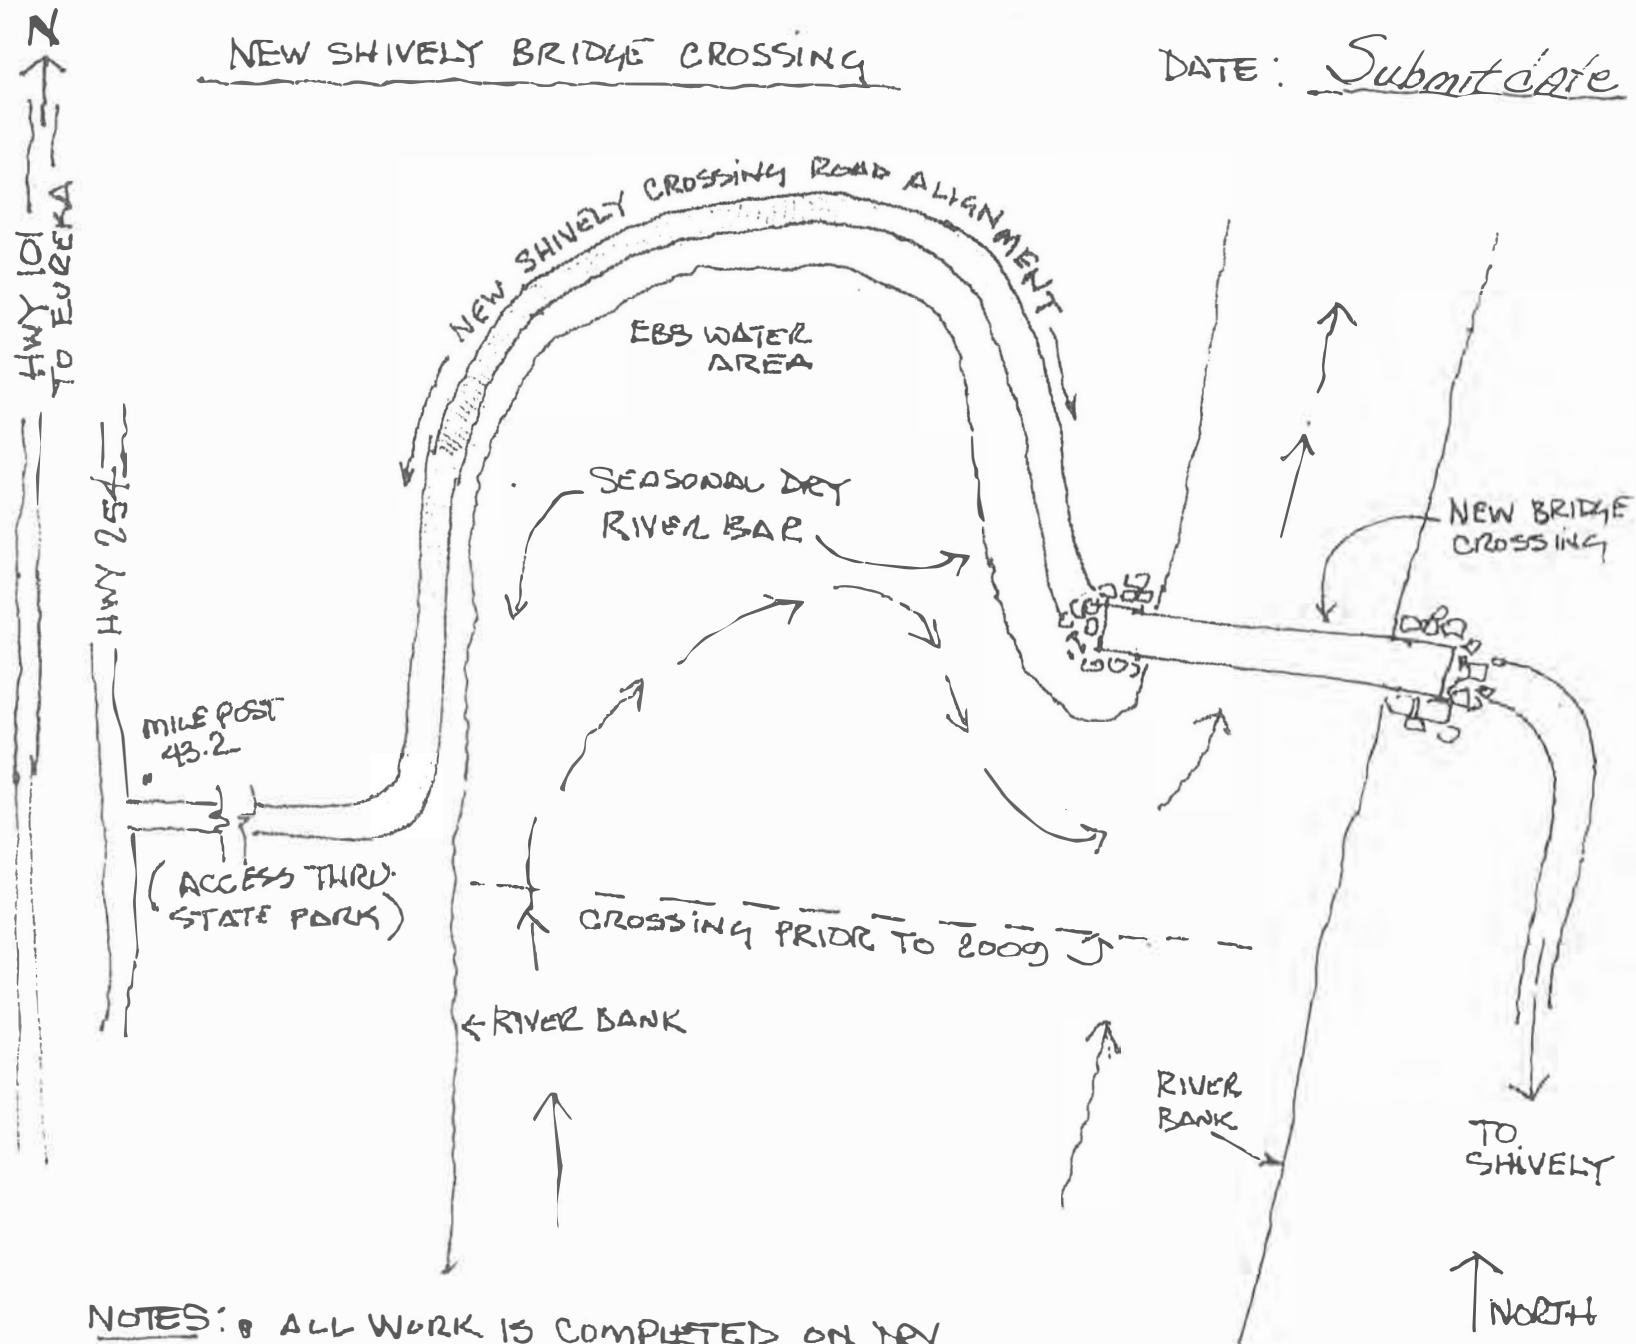 N
NEW SHIVELY BRIDGE CROSSING
DATE: Submit date
HWY 101
TO EUREKA
NEW SHIVELY CROSSING ROAD ALIGNMENT
EBB WATER
AREA
HWY 254
SEASONAL DRY
RIVER BAR
NEW BRIDGE
CROSSING
MILE POST
43.2
(ACCESS THRU.
STATE PARK)
CROSSING PRIOR TO 2009
RIVER BANK
RIVER
BANK
TO
SHIVELY
NORTH
NOTES: • ALL WORK IS COMPLETED ON DRY